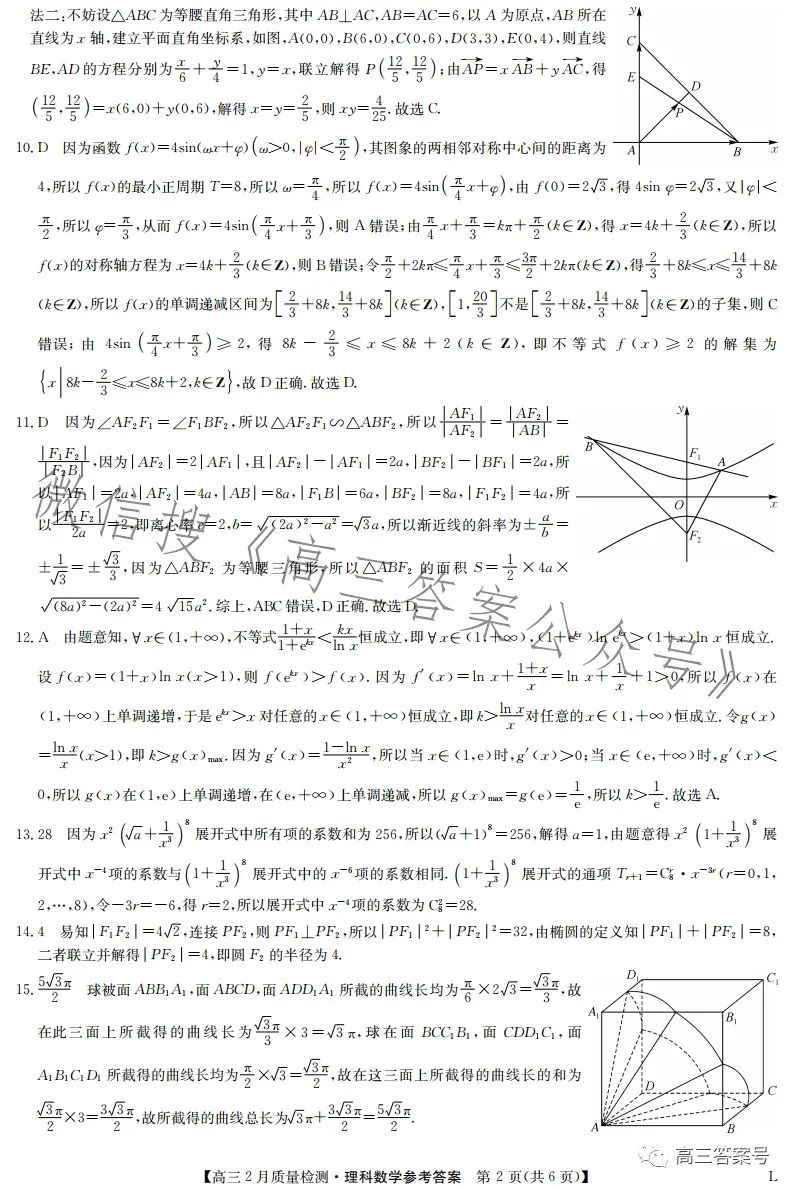 法二:不妨设△ABC为等腰直角三角形,其中AB⊥AC,AB=AC=6,以A为原点,AB所在
直线为x轴,建立平面直角坐标系,如图,A(0,0),B(6,0),C(0,6),D(3,3),E(0,4),则直线
BE,AD的方程分别为x/6+y/4=1,y=x,联立解得P(12/5,12/5);由AP→=xAB→+yAC→,得
(12/5,12/5)=x(6,0)+y(0,6),解得x=y=2/5,则xy=4/25.故选C.
y
C
E
D
P
A
B
x
10.D 因为函数f(x)=4sin(ωx+φ)(ω>0,|φ|<π/2),其图象的两相邻对称中心间的距离为
4,所以f(x)的最小正周期T=8,所以ω=π/4,所以f(x)=4sin(π/4x+φ),由f(0)=2√3,得4sin φ=2√3,又|φ|<
π/2,所以φ=π/3,从而f(x)=4sin(π/4x+π/3),则A错误;由π/4x+π/3=kπ+π/2(k∈Z),得x=4k+2/3(k∈Z),所以
f(x)的对称轴方程为x=4k+2/3(k∈Z),则B错误;令π/2+2kπ≤π/4x+π/3≤3π/2+2kπ(k∈Z),得2/3+8k≤x≤14/3+8k
(k∈Z),所以f(x)的单调递减区间为[2/3+8k,14/3+8k](k∈Z),[1,20/3]不是[2/3+8k,14/3+8k](k∈Z)的子集,则C
错误;由4sin(π/4x+π/3)≥2,得8k-2/3≤x≤8k+2(k∈Z),即不等式f(x)≥2的解集为
{x|8k-2/3≤x≤8k+2,k∈Z},故D正确.故选D.
11.D 因为∠AF₂F₁=∠F₁BF₂,所以△AF₂F₁∽△ABF₂,所以|AF₁|/|AF₂|=|AF₂|/|AB|=
|F₁F₂|/|F₂B|,因为|AF₂|=2|AF₁|,且|AF₂|-|AF₁|=2a,|BF₂|-|BF₁|=2a,所
以|AF₁|=2a,|AF₂|=4a,|AB|=8a,|F₁B|=6a,|BF₂|=8a,|F₁F₂|=4a,所
以|F₁F₂|/2a=2,即离心率e=2,b=√((2a)²-a²)=√3a,所以渐近线的斜率为±a/b=
±1/√3=±√3/3,因为△ABF₂为等腰三角形,所以△ABF₂的面积S=1/2×4a×
√((8a)²-(2a)²)=4√15a².综上,ABC错误,D正确.故选D.
y
B
F₁
A
O
x
F₂
12.A 由题意知,∀x∈(1,+∞),不等式(1+x)/(1+eᵏˣ)<kx/ln x恒成立,即∀x∈(1,+∞),(1+eᵏˣ)ln eᵏˣ>(1+x)ln x恒成立.
设f(x)=(1+x)ln x(x>1),则f(eᵏˣ)>f(x).因为f′(x)=ln x+(1+x)/x=ln x+1/x+1>0,所以f(x)在
(1,+∞)上单调递增,于是eᵏˣ>x对任意的x∈(1,+∞)恒成立,即k>ln x/x对任意的x∈(1,+∞)恒成立.令g(x)
=ln x/x(x>1),即k>g(x)max.因为g′(x)=(1-ln x)/x²,所以当x∈(1,e)时,g′(x)>0;当x∈(e,+∞)时,g′(x)<
0,所以g(x)在(1,e)上单调递增,在(e,+∞)上单调递减,所以g(x)max=g(e)=1/e,所以k>1/e.故选A.
13.28 因为x²(√a+1/x³)⁸展开式中所有项的系数和为256,所以(√a+1)⁸=256,解得a=1,由题意得x²(1+1/x³)⁸展
开式中x⁻⁴项的系数与(1+1/x³)⁸展开式中的x⁻⁶项的系数相同.(1+1/x³)⁸展开式的通项Tᵣ₊₁=C₈ʳ·x⁻³ʳ(r=0,1,
2,…,8),令-3r=-6,得r=2,所以展开式中x⁻⁴项的系数为C₈²=28.
14.4 易知|F₁F₂|=4√2,连接PF₂,则PF₁⊥PF₂,所以|PF₁|²+|PF₂|²=32,由椭圆的定义知|PF₁|+|PF₂|=8,
二者联立并解得|PF₂|=4,即圆F₂的半径为4.
15.5√3π/2 球被面ABB₁A₁,面ABCD,面ADD₁A₁所截的曲线长均为π/6×2√3=√3π/3,故
在此三面上所截得的曲线长为√3π/3×3=√3π,球在面BCC₁B₁,面CDD₁C₁,面
A₁B₁C₁D₁所截得的曲线长均为π/2×√3=√3π/2,故在这三面上所截得的曲线长的和为
√3π/2×3=3√3π/2,故所截得的曲线总长为√3π+3√3π/2=5√3π/2.
D₁
C₁
A₁
B₁
D
C
A
B
微信搜《高三答案公众号》
高三答案号
【高三2月质量检测·理科数学参考答案 第2页(共6页)】 L